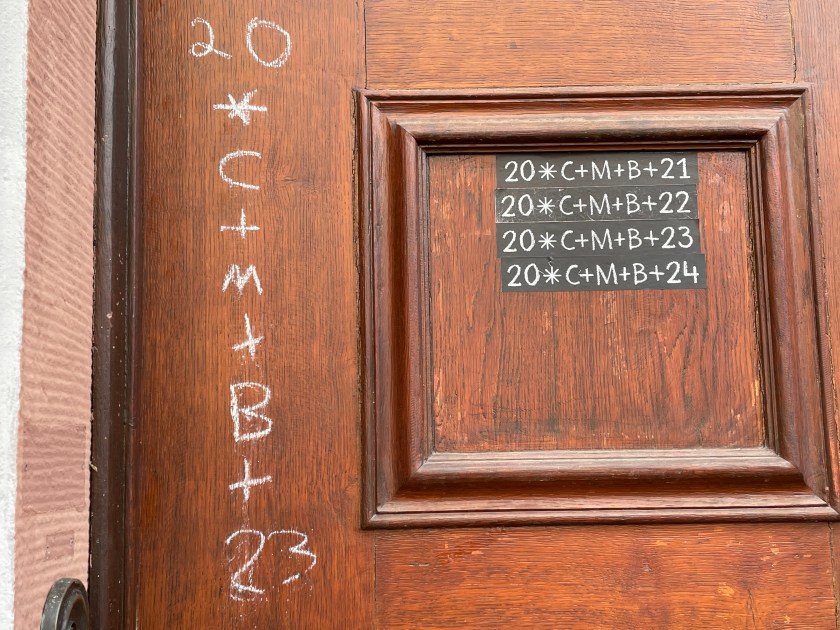 20
*
C
+
M
+
B
+
23
20*C+M+B+21
20*C+M+B+22
20*C+M+B+23
20*C+M+B+24